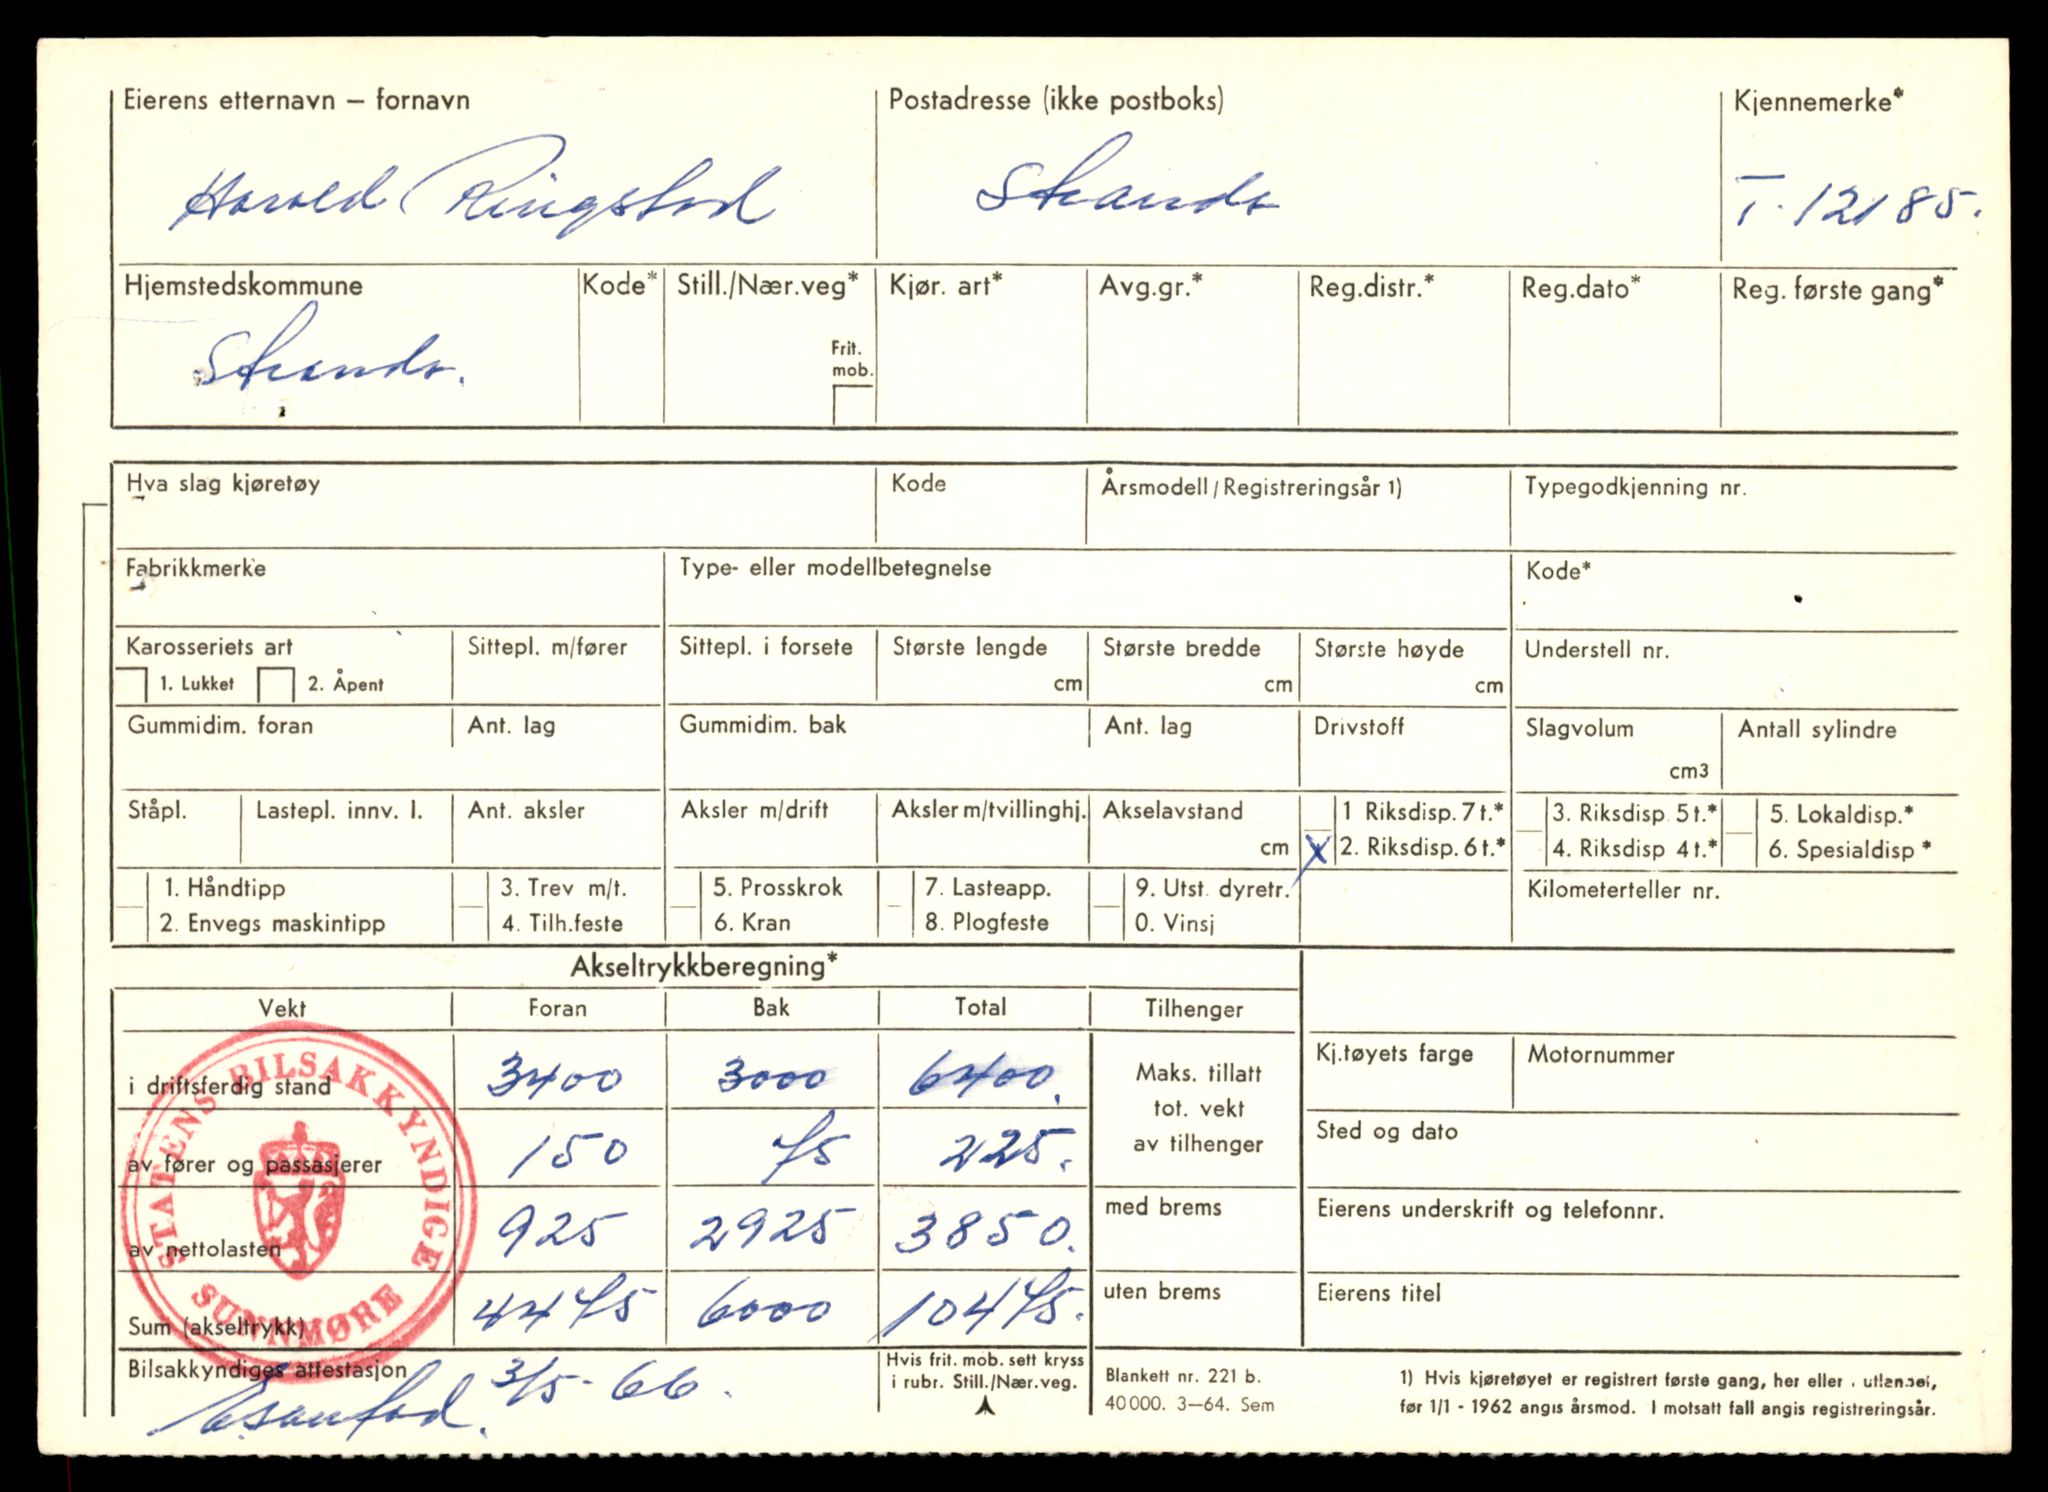 Eierens etternavn – fornavn Postadresse (ikke postboks) Kjennemerke*
Harald Ringstad Stranda T-12185.
Hjemstedskommune Kode* Still./Nær.veg* Kjør. art* Avg.gr.* Reg.distr.* Reg.dato* Reg. første gang*
Stranda.
Frit.
mob.
Hva slag kjøretøy Kode Årsmodell/Registreringsår 1) Typegodkjenning nr.
Fabrikkmerke Type- eller modellbetegnelse Kode*
Karosseriets art Sittepl. m/fører Sittepl. i forsete Største lengde Største bredde Største høyde Understell nr.
1. Lukket 2. Åpent cm cm cm
Gummidim. foran Ant. lag Gummidim. bak Ant. lag Drivstoff Slagvolum Antall sylindre
cm3
Ståpl. Lastepl. innv. l. Ant. aksler Aksler m/drift Aksler m/tvillinghj. Akselavstand 1 Riksdisp. 7 t.* 3. Riksdisp 5 t.* 5. Lokaldisp.*
cm X 2. Riksdisp. 6 t.* 4. Riksdisp 4 t.* 6. Spesialdisp *
1. Håndtipp 3. Trev m/t. 5. Prosskrok 7. Lasteapp. 9. Utst. dyretr. Kilometerteller nr.
2. Envegs maskintipp 4. Tilh.feste 6. Kran 8. Plogfeste 0. Vinsj
Akseltrykkberegning*
Vekt Foran Bak Total Tilhenger
i driftsferdig stand 3400 3000 6400. Maks. tillatt Kj.tøyets farge Motornummer
tot. vekt
av fører og passasjerer 150 75 225. av tilhenger Sted og dato
av nettolasten 925 2925 3850. med brems Eierens underskrift og telefonnr.
Sum (akseltrykk) 4475 6000 10475. uten brems Eierens titel
STATENS BILSAKKYNDIGE
SUNNMØRE
Bilsakkyndiges attestasjon 3/5-66. Hvis frit. mob. sett kryss Blankett nr. 221 b. 1) Hvis kjøretøyet er registrert første gang, her eller i utlandet,
i rubr. Still./Nær.veg. 40000. 3–64. Sem før 1/1 - 1962 angis årsmod. I motsatt fall angis registreringsår.